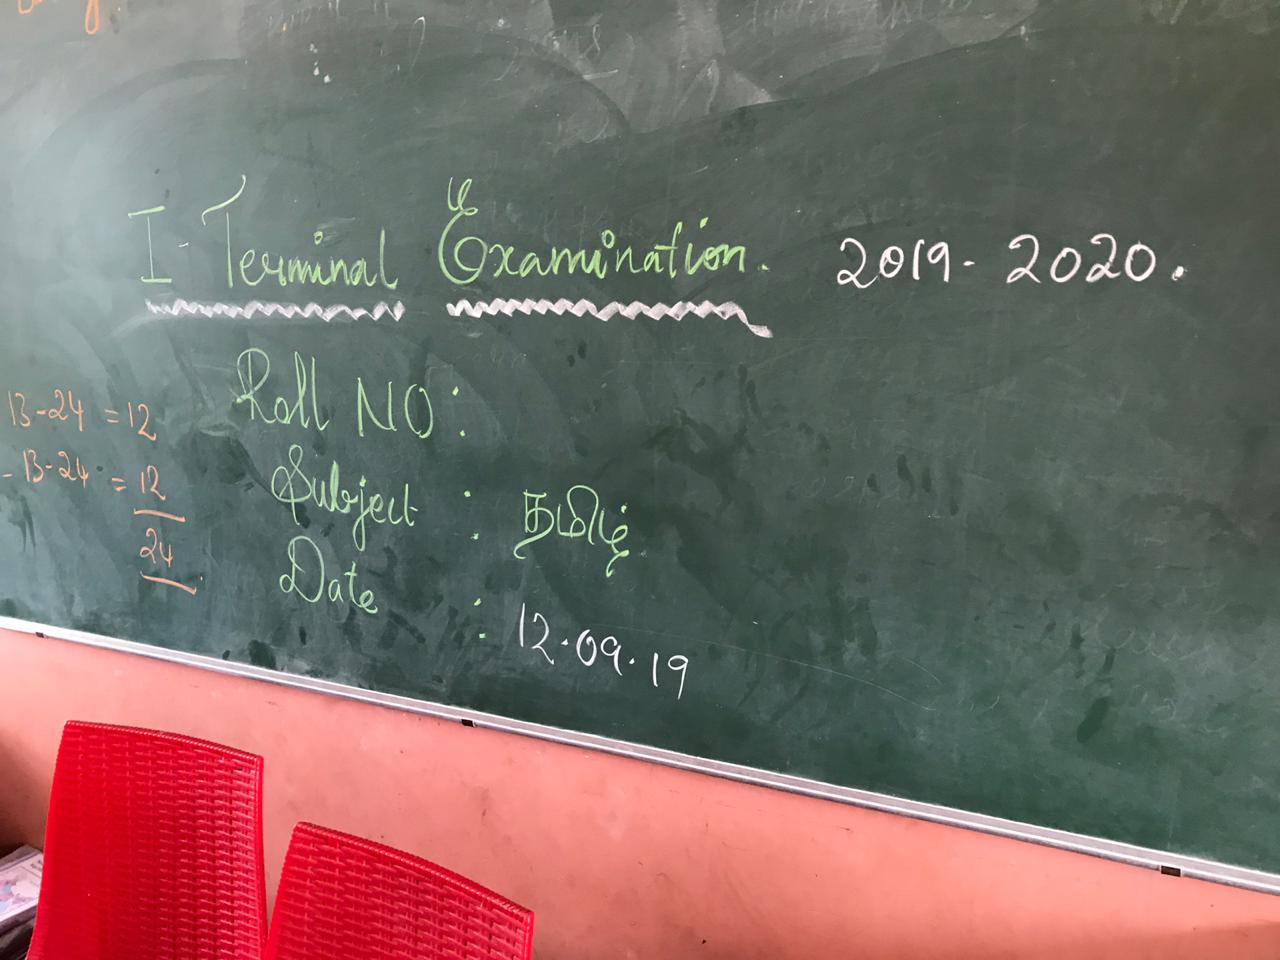 I - Terminal Examination. 2019 - 2020.
Roll NO :
Subject : தமிழ்
Date : 12.09.19
13-24 = 12
- 13-24 = 12
24